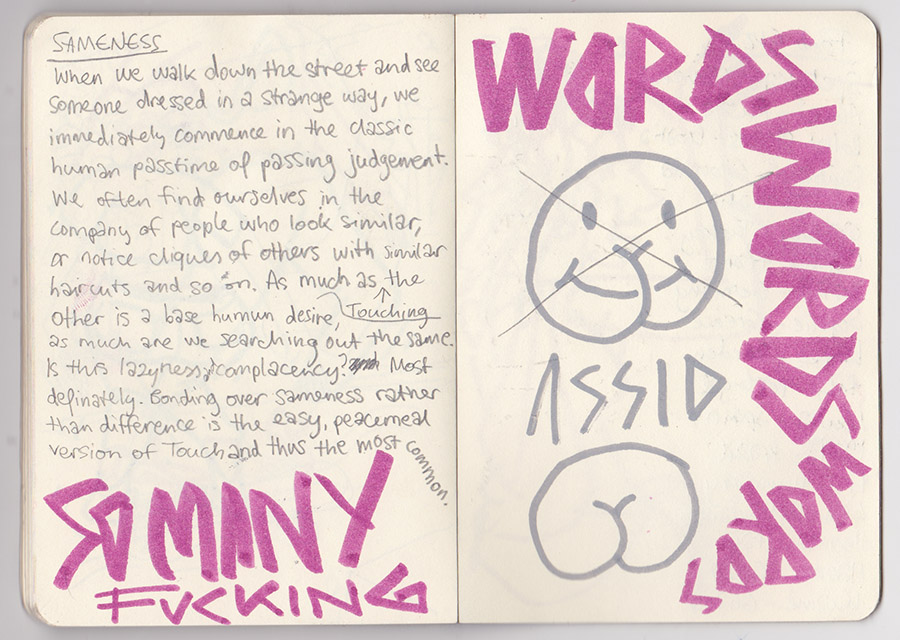 SAMENESS
When we walk down the street and see
someone dressed in a strange way, we
immediately commence in the classic
human passtime of passing judgement.
We often find ourselves in the
company of people who look similar,
or notice cliques of others with similar
haircuts and so on. As much as the
Touching
Other is a base human desire,
as much are we searching out the same.
Is this lazyness, complacency? Most
definately. Bonding over sameness rather
than difference is the easy, peacemeal
version of Touch and thus the most common.
SO MANY
FUCKING
WORDS
WORDS
WORDS
WORDS
ASSID